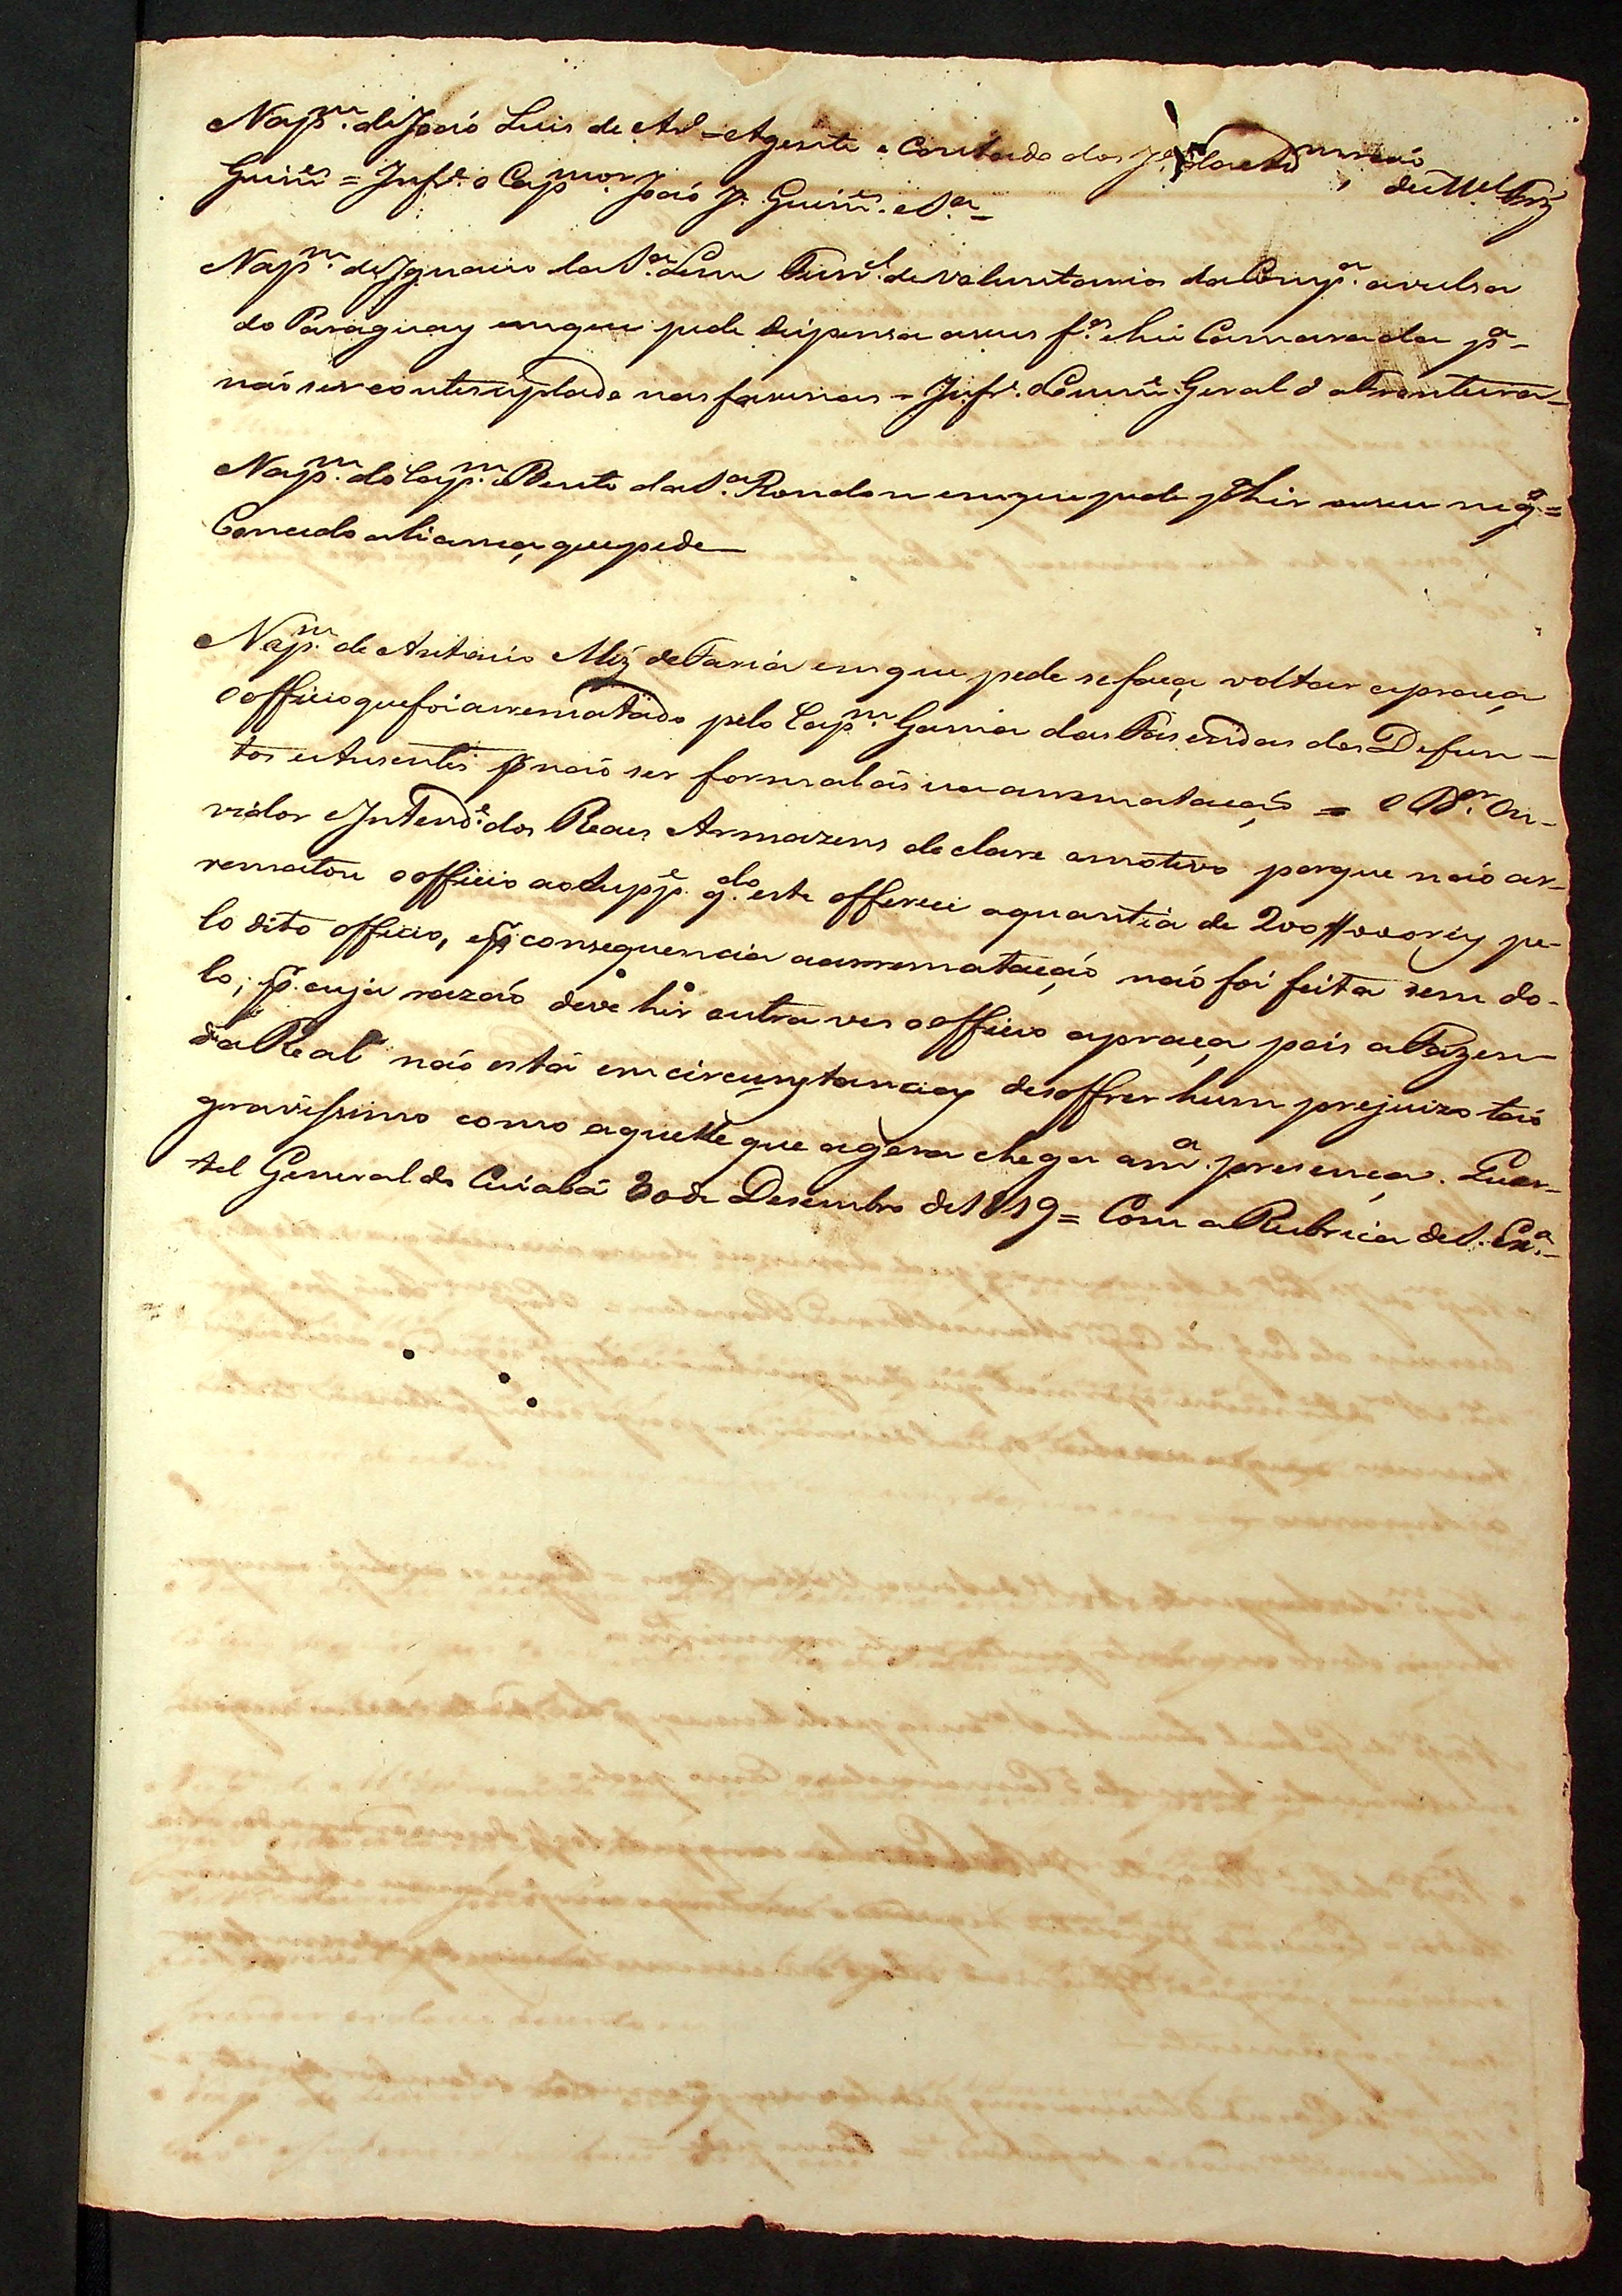 Nap.m de João Luis de Ar.o = Agente e Contado dos
Guim.es = Inf.e o Cap.m mor João J.e Guim.es e S.a
Nap.m de Ignacio da S.a Leme Furr.el de Voluntarios da Comp.a avulsa
do Paraguay em que pede dispensa a seus f.os e hú Camarada p.a
naó ser contemplado nas faxinas = Inf.e o Comm.e Geral d a Fronteira
Nap.m do Cap.m Bento da S.a Rondon em que pede p.a hir a seu neg.o =
Concedo a licença que pede
Nap.m de Antonio Miz de Faria em que pede se faça voltar a praça
o officio que foi arrematado pelo Cap.m Gama das Fasendas dos Defun-
tos e Ausentes p naó ser formal ás ua arrematação = O D.or Ou-
vidor e Intend.e dos Reaes Armazens declare o motivo porque naó ar-
rematou o officio ao Supp.e q.do este offerece a quantia de 200//000 reis pe-
lo dito officio, e p consequencia a arremataçaó naó foi feita sem do-
lo; p. cuja razaó deve hir outra ves o officio a praça pois a Fazen-
da Real naó está em circunstancias de soffrer hum prejuizo taó
gravissimo como aquelle que agora chega a m.a presença. Quar-
tel General do Cuiabá 30 de Desembro de 1819 = Com a Rubrica de S. Ex.a